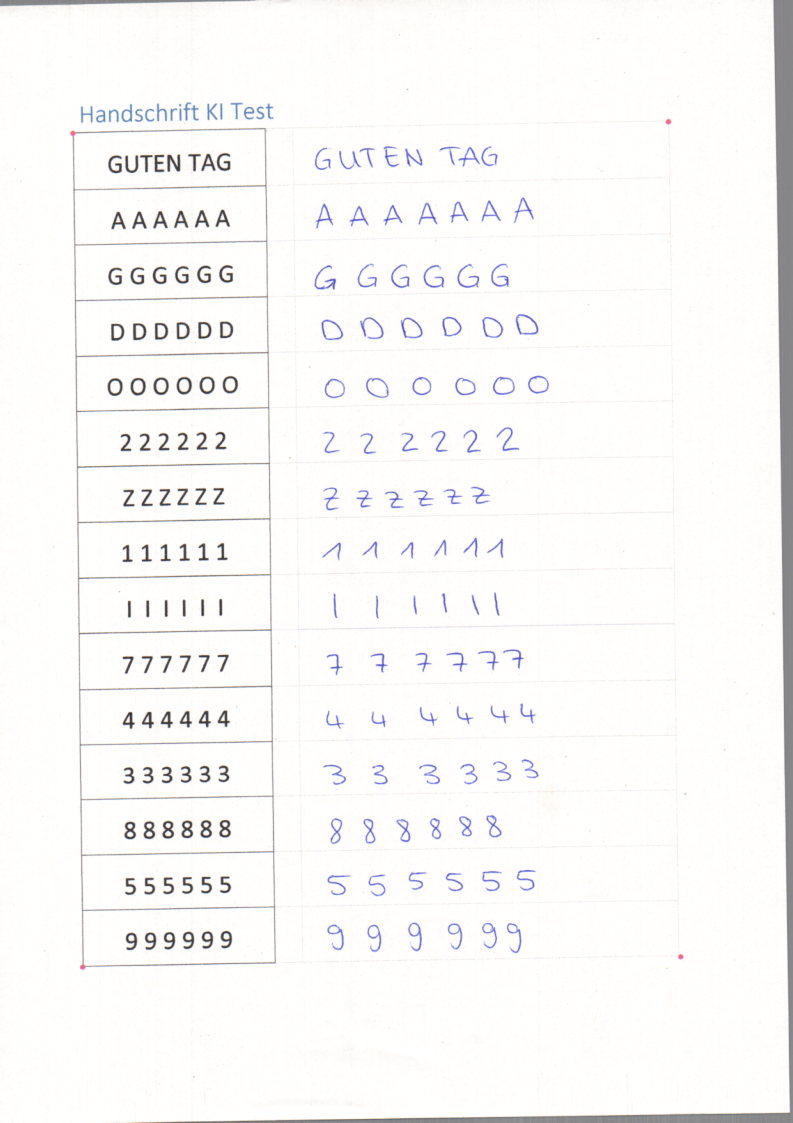 Handschrift KI Test
GUTEN TAG GUTEN TAG
A A A A A A A A A A A A A
G G G G G G G G G G G G
D D D D D D D D D D D D
O O O O O O O O O O O O
2 2 2 2 2 2 2 2 2 2 2 2
Z Z Z Z Z Z Z Z Z Z Z Z
1 1 1 1 1 1 1 1 1 1 1 1
I I I I I I I I I I I I
7 7 7 7 7 7 7 7 7 7 7 7
4 4 4 4 4 4 4 4 4 4 4 4
3 3 3 3 3 3 3 3 3 3 3 3
8 8 8 8 8 8 8 8 8 8 8 8
5 5 5 5 5 5 5 5 5 5 5 5
9 9 9 9 9 9 9 9 9 9 9 9